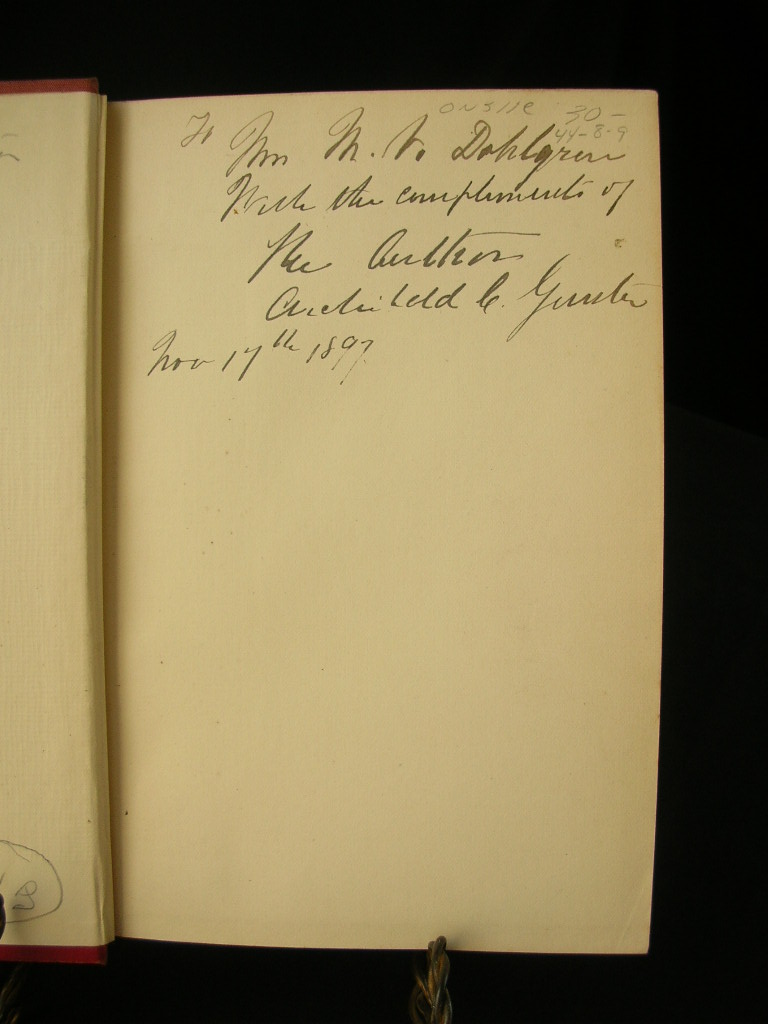 onsite 30-
44-8-9
To
Mrs M. V. Dahlgren
With the compliments of
The Author
Archibald C. Gunter
Nov 17th 1897